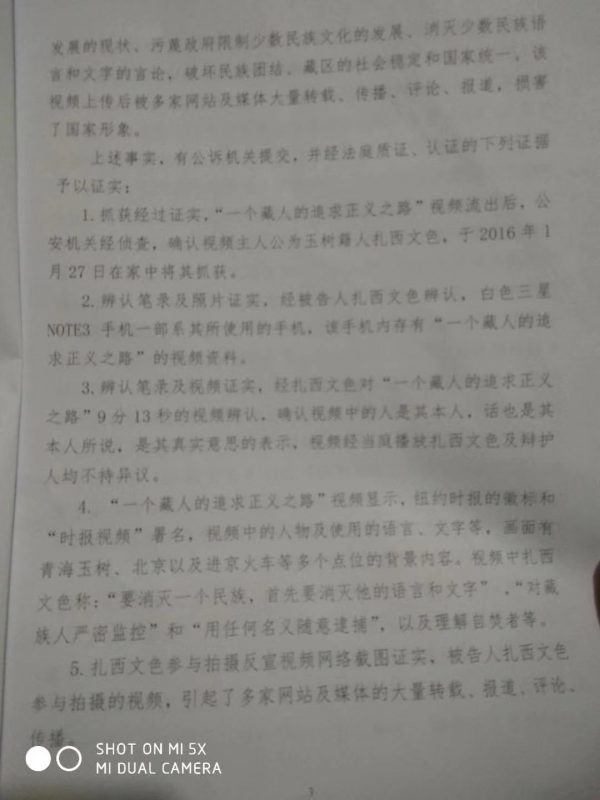 发展的现状、污蔑政府限制少数民族文化的发展、消灭少数民族语
言和文字的言论，破坏民族团结、藏区的社会稳定和国家统一。该
视频上传后被多家网站及媒体大量转载、传播、评论、报道，损害
了国家形象。
上述事实，有公诉机关提交，并经法庭质证、认证的下列证据
予以证实：
1. 抓获经过证实，“一个藏人的追求正义之路”视频流出后，公
安机关经侦查，确认视频主人公为玉树籍人扎西文色，于 2016 年 1
月 27 日在家中将其抓获。
2. 辨认笔录及照片证实，经被告人扎西文色辨认，白色三星
NOTE3 手机一部系其所使用的手机，该手机内存有“一个藏人的追
求正义之路”的视频资料。
3. 辨认笔录及视频证实，经扎西文色对“一个藏人的追求正义
之路”9 分 13 秒的视频辨认，确认视频中的人是其本人，话也是其
本人所说，是其真实意思的表示，视频经当庭播放扎西文色及辩护
人均不持异议。
4. “一个藏人的追求正义之路”视频显示，纽约时报的徽标和
“时报视频”署名，视频中的人物及使用的语言、文字等，画面有
青海玉树、北京以及进京火车等多个点位的背景内容。视频中扎西
文色称：“要消灭一个民族，首先要消灭他的语言和文字”，“对藏
族人严密监控”和“用任何名义随意逮捕”，以及理解自焚者等。
5. 扎西文色参与拍摄反宣视频网络截图证实，被告人扎西文色
参与拍摄的视频，引起了多家网站及媒体的大量转载、报道、评论、
传播。
SHOT ON MI 5X
MI DUAL CAMERA
3